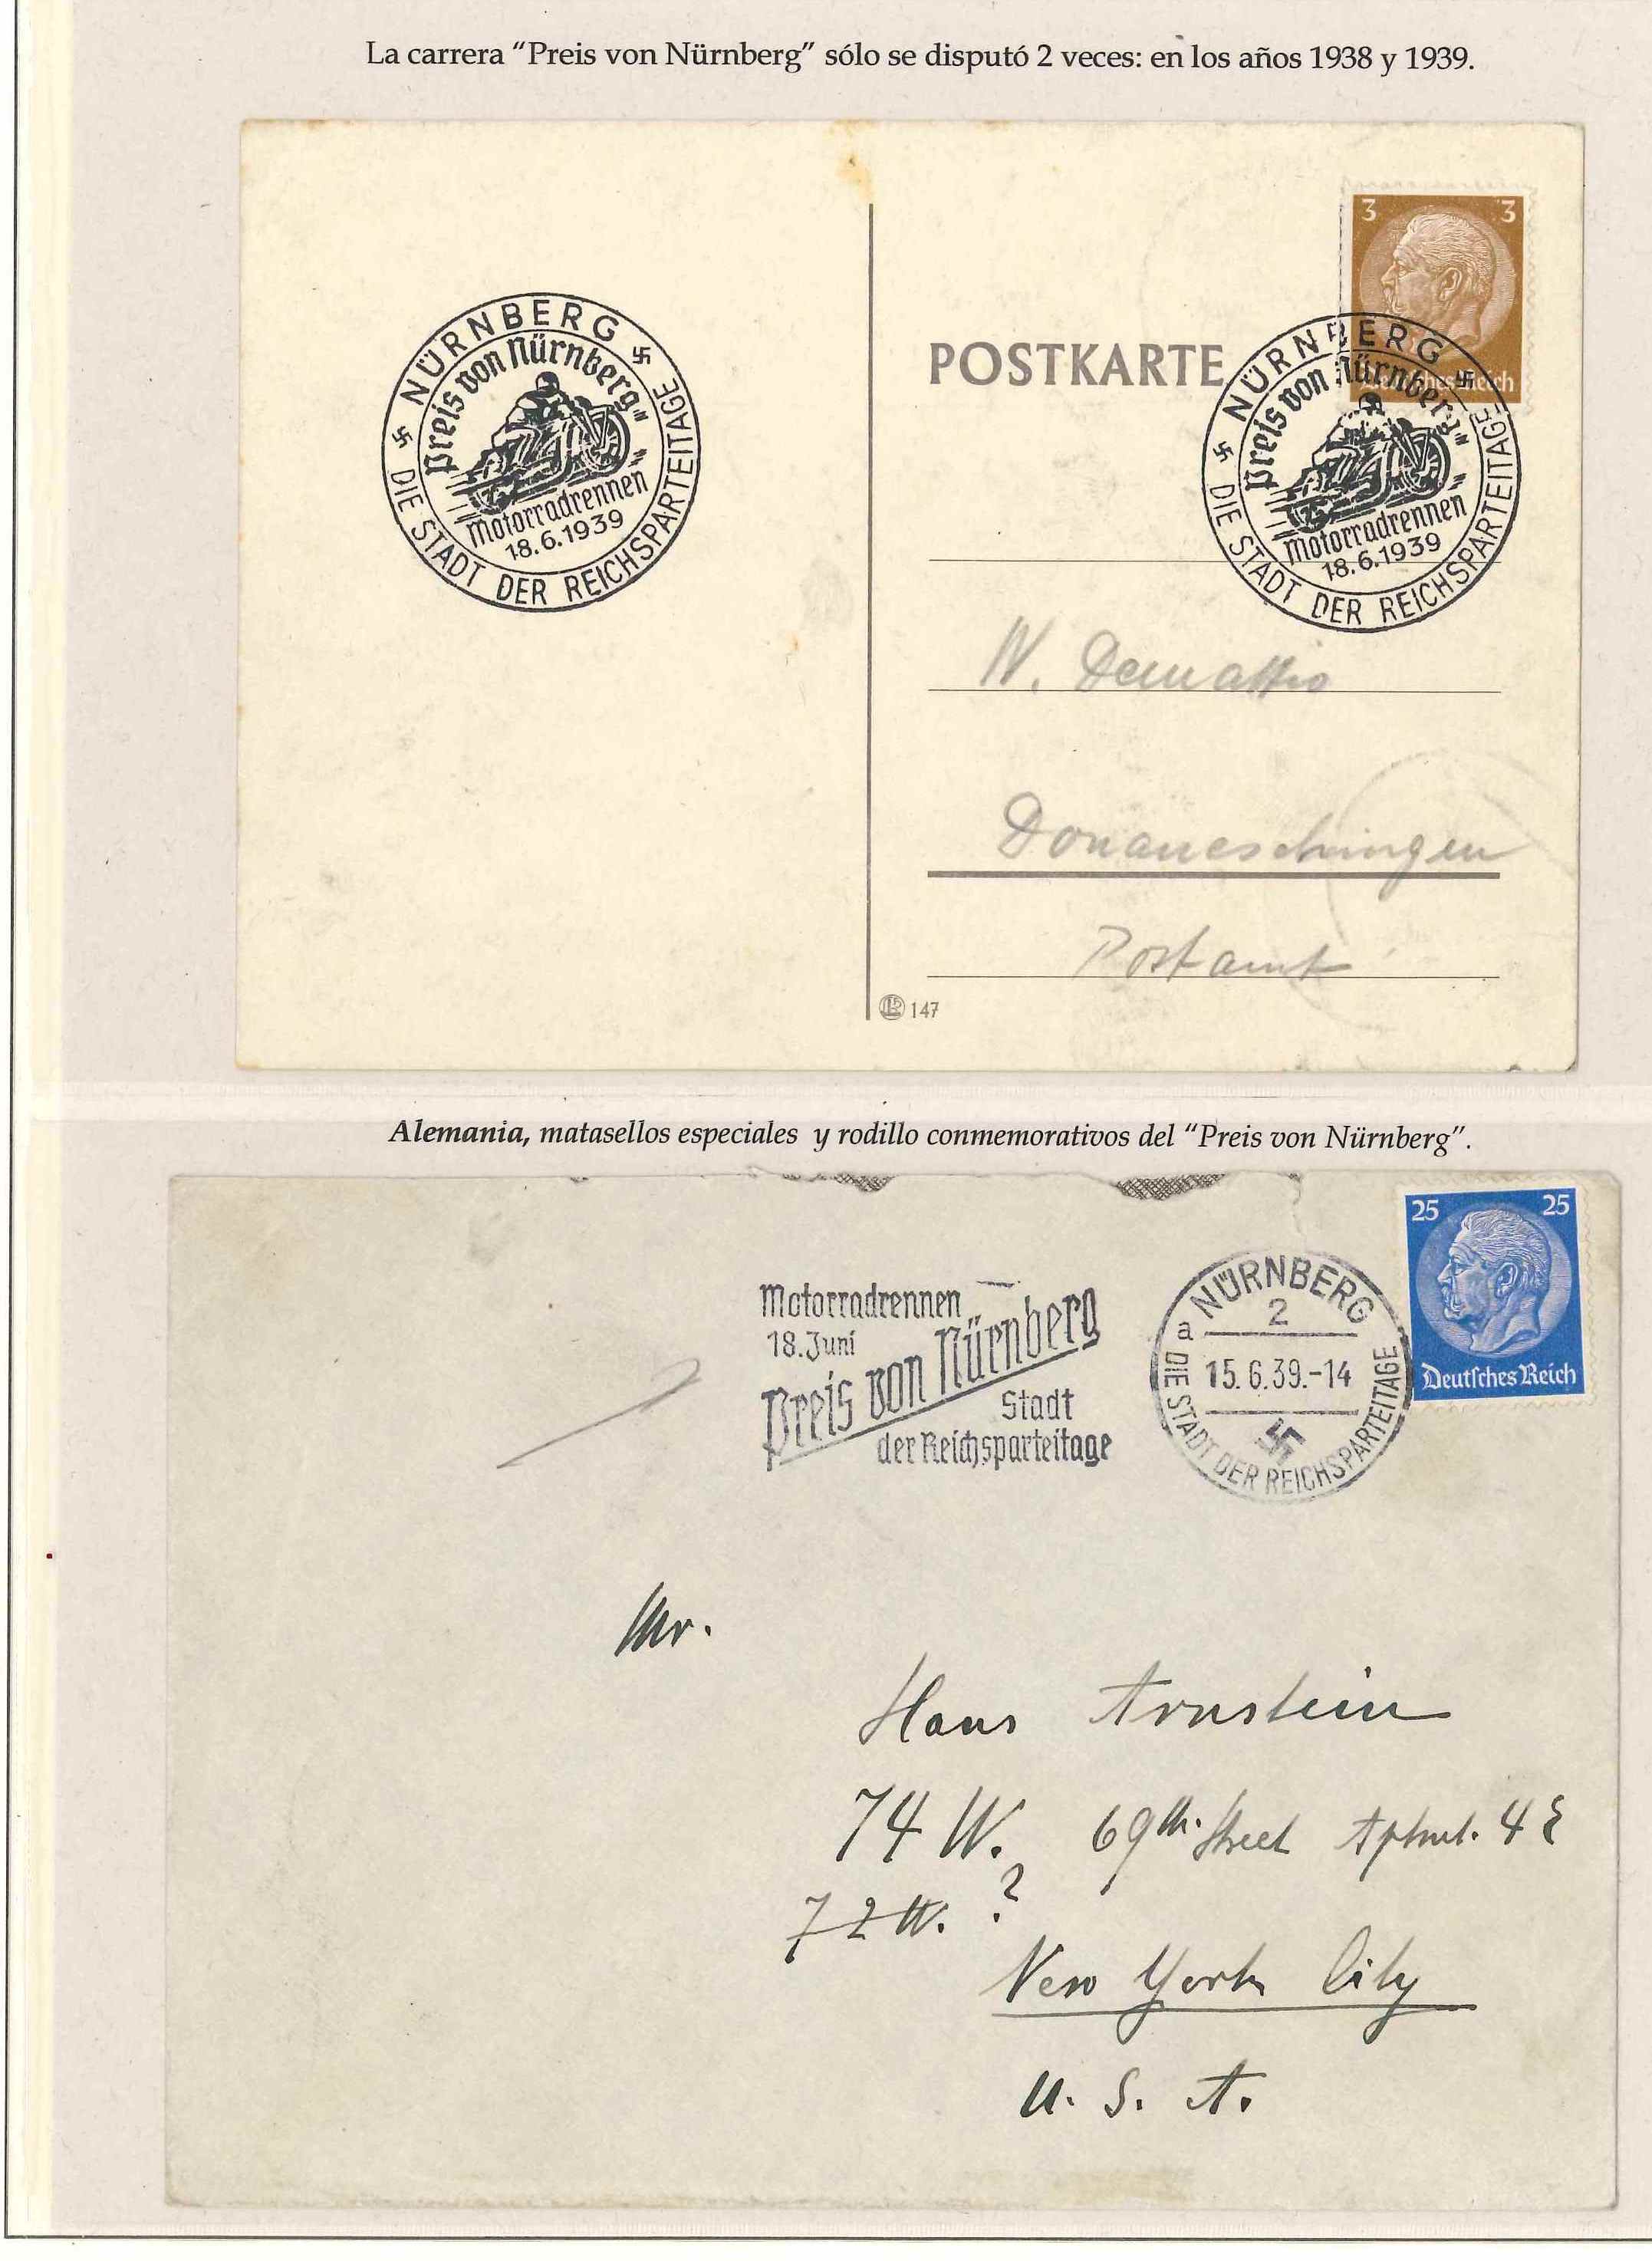 La carrera “Preis von Nürnberg” sólo se disputó 2 veces: en los años 1938 y 1939.
NÜRNBERG
DIE STADT DER REICHSPARTEITAGE
„Preis von Nürnberg"
Motorradrennen
18.6.1939
3 3
Deutsches Reich
POSTKARTE
NÜRNBERG
DIE STADT DER REICHSPARTEITAGE
„Preis von Nürnberg"
Motorradrennen
18.6.1939
Donaueschingen
Postamt
147
Alemania, matasellos especiales y rodillo conmemorativos del “Preis von Nürnberg”.
25 25
Deutsches Reich
Motorradrennen
18. Juni
Preis von Nürnberg
Stadt
der Reichsparteitage
NÜRNBERG
2
a
15.6.39.-14
DIE STADT DER REICHSPARTEITAGE
Mr.
Hans Arnstein
74 W. 69th. Street Aptmt. 4 E
72 W. ?
New York City
U. S. A.